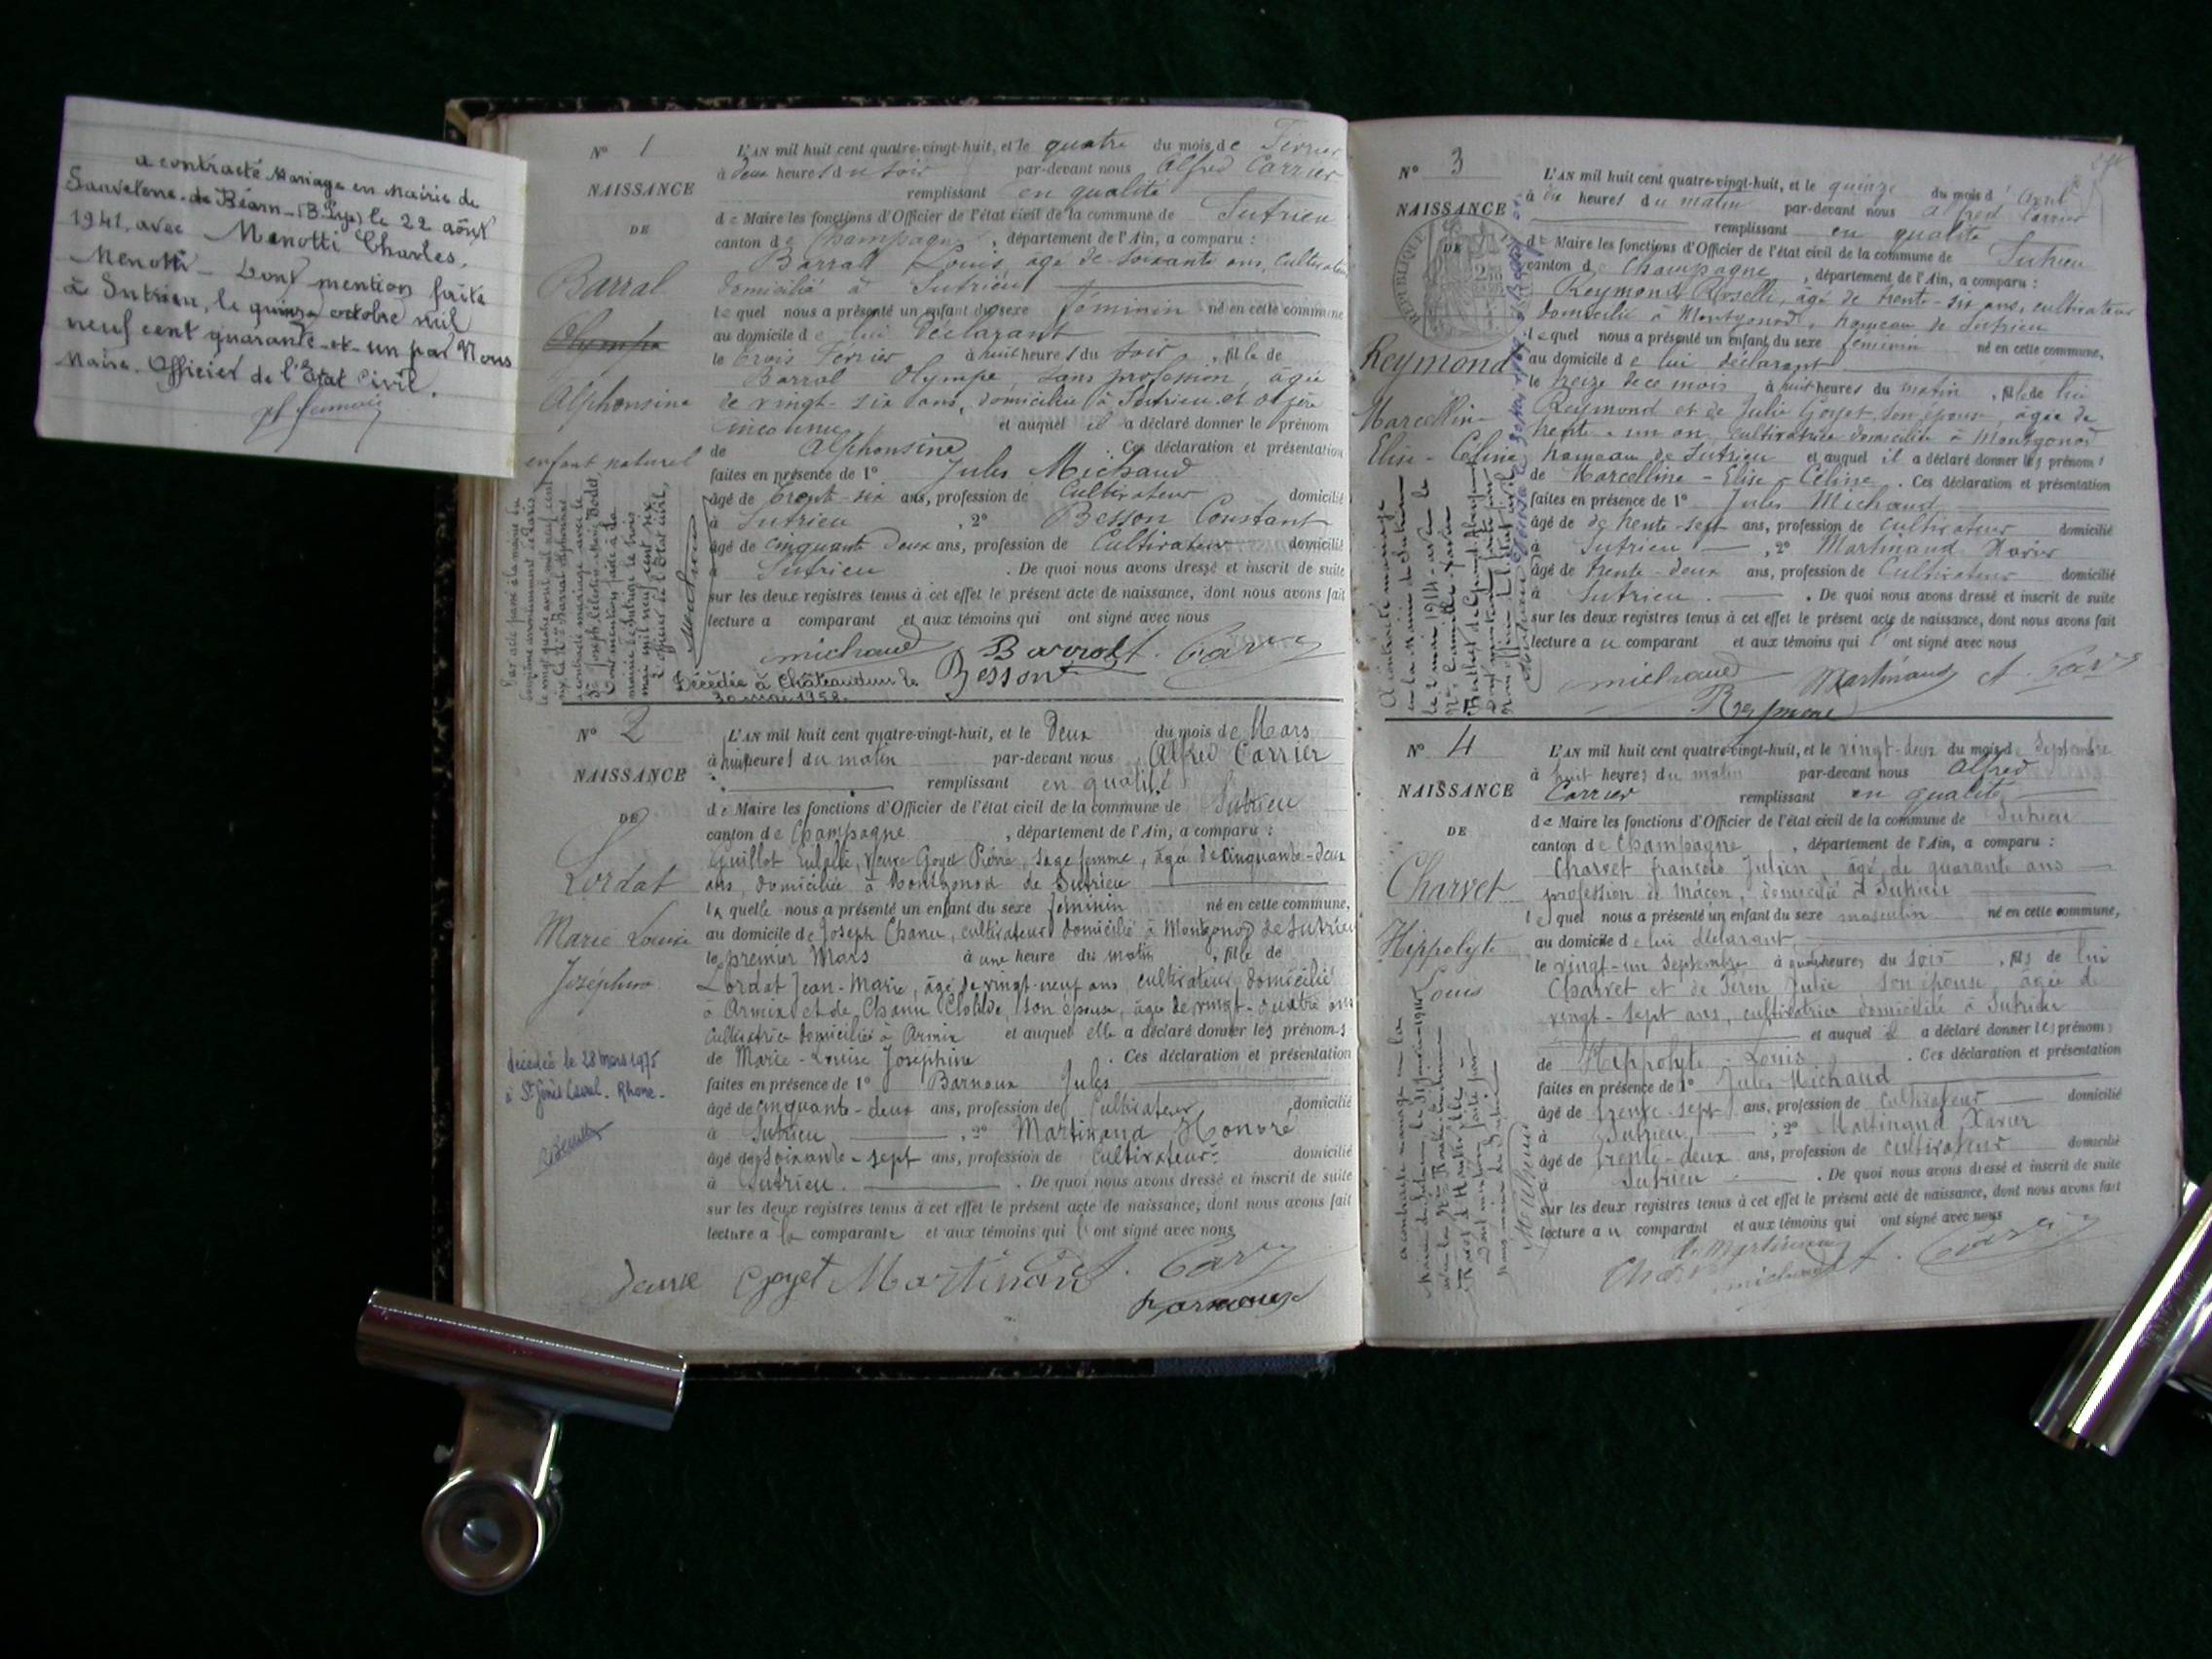 a contracté Mariage en Mairie de
Sauvelade-de Béarn-(B.Pyr) le 22 août
1941, avec Menotti Charles,
Menotti - Dont mention faite
à Sutrieu, le quinze octobre mil
neuf cent quarante-et-un par Nous
Maire. Officier de l'Etat Civil.
N° 1
NAISSANCE
DE
Barral
Olympe
Alphonsine
enfant naturel
L'AN mil huit cent quatre-vingt-huit, et le quatre du mois de Février
à deux heures du soir par-devant nous Alfred Carrier
remplissant en qualité
de Maire les fonctions d'Officier de l'état civil de la commune de Sutrieu
canton de Champagne, département de l'Ain, a comparu :
Barral Louis, âgé de soixante ans, cultivateur
domicilié à Sutrieu
lequel nous a présenté un enfant du sexe féminin né en cette commune
au domicile de lui déclarant
le trois Février à huit heures du soir, fille de
Barral Olympe, sans profession, âgée
de vingt-six ans, domiciliée à Sutrieu et de père
inconnu et auquel il a déclaré donner le prénom
de Alphonsine. Ces déclaration et présentation
faites en présence de 1° Jules Michaud
âgé de trente-six ans, profession de Cultivateur domicilié
à Sutrieu, 2° Besson Constant
âgé de cinquante deux ans, profession de Cultivateur domicilié
à Sutrieu. De quoi nous avons dressé et inscrit de suite
sur les deux registres tenus à cet effet le présent acte de naissance, dont nous avons fait
lecture a comparant et aux témoins qui ont signé avec nous
michaud Barral A. Carrier
Besson
Décédée à Châteaudun le
30 mai 1958.
N° 2
NAISSANCE
DE
Lordat
Marie Louise
Joséphine
décédée le 28 mars 1975
à St Genis Laval. Rhône.
L'AN mil huit cent quatre-vingt-huit, et le Deux du mois de Mars
à huit heures du matin par-devant nous Alfred Carrier
remplissant en qualité
de Maire les fonctions d'Officier de l'état civil de la commune de Sutrieu
canton de Champagne, département de l'Ain, a comparu :
Guillot Eulalie, veuve Goyet Pierre, sage femme, âgée de cinquante-deux
ans, domiciliée à Montgonod de Sutrieu
laquelle nous a présenté un enfant du sexe féminin né en cette commune,
au domicile de Joseph Chanu, cultivateur domicilié à Montgonod de Sutrieu
le premier Mars à une heure du matin, fille de
Lordat Jean-Marie, âgé de vingt-neuf ans, cultivateur domicilié
à Armix et de Chanu Clotilde, son épouse, âgée de vingt-quatre ans
cultivatrice domiciliée à Armix et auquel elle a déclaré donner les prénoms
de Marie-Louise Joséphine. Ces déclaration et présentation
faites en présence de 1° Barnoux Jules
âgé de cinquante-deux ans, profession de Cultivateur domicilié
à Sutrieu, 2° Martinand Honoré
âgé de soixante-sept ans, profession de Cultivateur domicilié
à Sutrieu. De quoi nous avons dressé et inscrit de suite
sur les deux registres tenus à cet effet le présent acte de naissance, dont nous avons fait
lecture a la comparante et aux témoins qui ont signé avec nous
Veuve Goyet Martinand A. Carrier
Barnoux
N° 3
NAISSANCE
DE
Reymond
Marcelline
Elise-Céline
L'AN mil huit cent quatre-vingt-huit, et le quinze du mois d'Avril
à dix heures du matin par-devant nous Alfred Carrier
remplissant en qualité
de Maire les fonctions d'Officier de l'état civil de la commune de Sutrieu
canton de Champagne, département de l'Ain, a comparu :
Reymond Anselle, âgé de trente-six ans, cultivateur
domicilié à Montgonod, hameau de Sutrieu
lequel nous a présenté un enfant du sexe féminin né en cette commune,
au domicile de lui déclarant
le treize de ce mois à huit heures du matin, fille de lui
Reymond et de Julie Goyet son épouse, âgée de
trente-un an, cultivatrice domiciliée à Montgonod
hameau de Sutrieu et auquel il a déclaré donner les prénoms
de Marcelline-Elise-Céline. Ces déclaration et présentation
faites en présence de 1° Jules Michaud
âgé de trente-sept ans, profession de cultivateur domicilié
à Sutrieu, 2° Martinand Xavier
âgé de trente-deux ans, profession de Cultivateur domicilié
à Sutrieu. De quoi nous avons dressé et inscrit de suite
sur les deux registres tenus à cet effet le présent acte de naissance, dont nous avons fait
lecture au comparant et aux témoins qui l'ont signé avec nous
michaud Martinand A. Carrier
Reymond
N° 4
NAISSANCE
DE
Charvet
Hippolyte
Louis
L'AN mil huit cent quatre-vingt-huit, et le vingt-deux du mois de Septembre
à huit heures du matin par-devant nous Alfred
Carrier remplissant en qualité
de Maire les fonctions d'Officier de l'état civil de la commune de Sutrieu
canton de Champagne, département de l'Ain, a comparu :
Charvet françois Julien, âgé de quarante ans
profession de Maçon, domicilié à Sutrieu
lequel nous a présenté un enfant du sexe masculin né en cette commune,
au domicile de lui déclarant
le vingt-un Septembre à quatre heures du soir, fils de lui
Charvet et de Julie son épouse âgée de
vingt-sept ans, cultivatrice domiciliée à Sutrieu
et auquel il a déclaré donner les prénoms
de Hippolyte-Louis. Ces déclaration et présentation
faites en présence de 1° Jules Michaud
âgé de trente-sept ans, profession de cultivateur domicilié
à Sutrieu, 2° Martinand Xavier
âgé de trente-deux ans, profession de cultivateur domicilié
à Sutrieu. De quoi nous avons dressé et inscrit de suite
sur les deux registres tenus à cet effet le présent acte de naissance, dont nous avons fait
lecture au comparant et aux témoins qui ont signé avec nous
Martinand
Charvet michaud A. Carrier